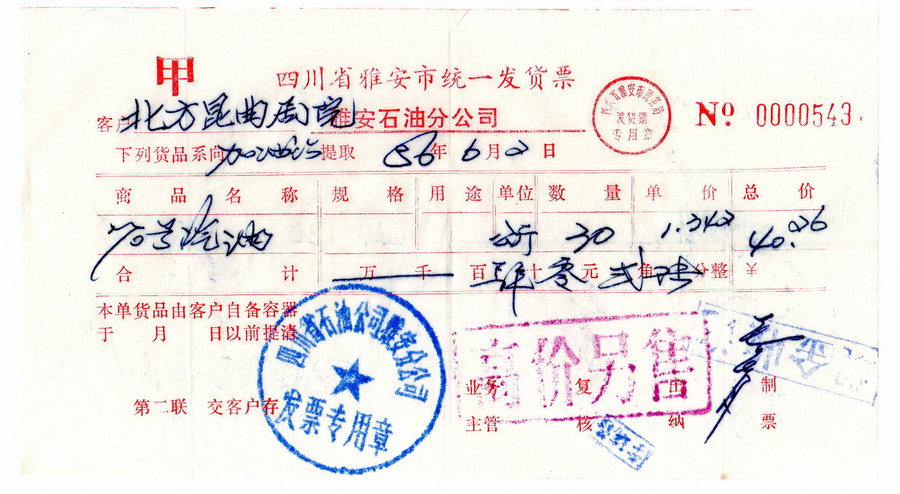 甲
四川省雅安市统一发货票
雅安石油分公司
四川省雅安市税务局
发货票
专用章
Nº 0000543
客户 北方昆曲剧院
下列货品系向加油站提取 86年6月2日
商品名称 规格 用途 单位 数量 单价 总价
70号汽油 30 1.342 40.26
合计 万 千 百 肆十零元贰角陆分整 ¥
本单货品由客户自备容器
于 月 日以前提清
四川省石油公司雅安分公司
发票专用章
高价另售
业务 复 出 制
主管 核 纳 票
第二联 交客户存